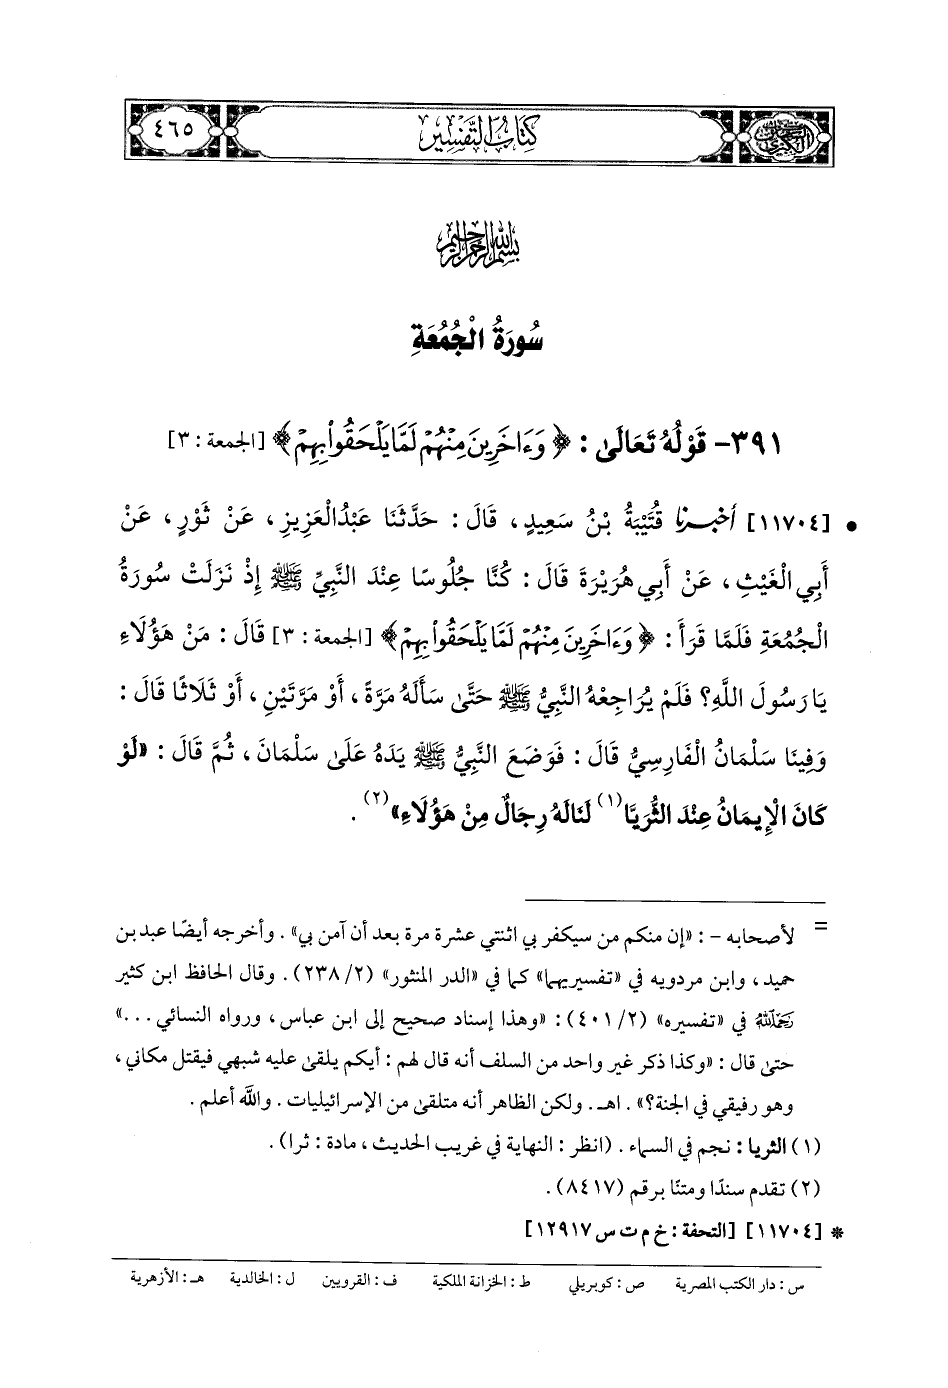 السنن الكبرى
كتاب التفسير
٤٦٥
بسم الله الرحمن الرحيم
سُورَةُ الْجُمُعَةِ
٣٩١- قَوْلُهُ تَعَالَىٰ : ﴿ وَءَاخَرِينَ مِنْهُمْ لَمَّا يَلْحَقُوا۟ بِهِمْ ﴾ [الجمعة : ٣]
• [١١٧٠٤] أخبرنا قُتَيْبَةُ بْنُ سَعِيدٍ ، قَالَ : حَدَّثَنَا عَبْدُالْعَزِيزِ ، عَنْ ثَوْرٍ ، عَنْ
أَبِي الْغَيْثِ ، عَنْ أَبِي هُرَيْرَةَ قَالَ : كُنَّا جُلُوسًا عِنْدَ النَّبِيِّ ﷺ إِذْ نَزَلَتْ سُورَةُ
الْجُمُعَةِ فَلَمَّا قَرَأَ : ﴿ وَءَاخَرِينَ مِنْهُمْ لَمَّا يَلْحَقُوا۟ بِهِمْ ﴾ [الجمعة : ٣] قَالَ : مَنْ هَؤُلَاءِ
يَا رَسُولَ اللَّهِ؟ فَلَمْ يُرَاجِعْهُ النَّبِيُّ ﷺ حَتَّىٰ سَأَلَهُ مَرَّةً ، أَوْ مَرَّتَيْنِ ، أَوْ ثَلَاثًا قَالَ :
وَفِينَا سَلْمَانُ الْفَارِسِيُّ قَالَ : فَوَضَعَ النَّبِيُّ ﷺ يَدَهُ عَلَىٰ سَلْمَانَ ، ثُمَّ قَالَ : «لَوْ
كَانَ الْإِيمَانُ عِنْدَ الثُّرَيَّا(١) لَنَالَهُ رِجَالٌ مِنْ هَؤُلَاءِ»(٢) .
= لأصحابه - : «إن منكم من سيكفر بي اثنتي عشرة مرة بعد أن آمن بي» . وأخرجه أيضًا عبد بن
حميد ، وابن مردويه في «تفسيريهما» كما في «الدر المنثور» (٢/ ٢٣٨) . وقال الحافظ ابن كثير
رَحِمَهُ اللَّهُ في «تفسيره» (٢/ ٤٠١) : «وهذا إسناد صحيح إلى ابن عباس ، ورواه النسائي . . .»
حتىٰ قال : «وكذا ذكر غير واحد من السلف أنه قال لهم : أيكم يلقىٰ عليه شبهي فيقتل مكاني ،
وهو رفيقي في الجنة؟» . اهـ . ولكن الظاهر أنه متلقىٰ من الإسرائيليات . واللَّه أعلم .
(١) الثريا : نجم في السماء . (انظر : النهاية في غريب الحديث ، مادة : ثرا) .
(٢) تقدم سندًا ومتنًا برقم (٨٤١٧) .
* [١١٧٠٤] [التحفة : خ م ت س ١٢٩١٧]
س : دار الكتب المصرية ص : كوبريلي ط : الخزانة الملكية ف : القرويين ل : الخالدية هـ : الأزهرية